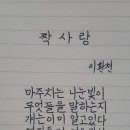 짝사랑
이환천
마주치는 니눈빛이
무엇들을 말하는지
개는이미 알고있다